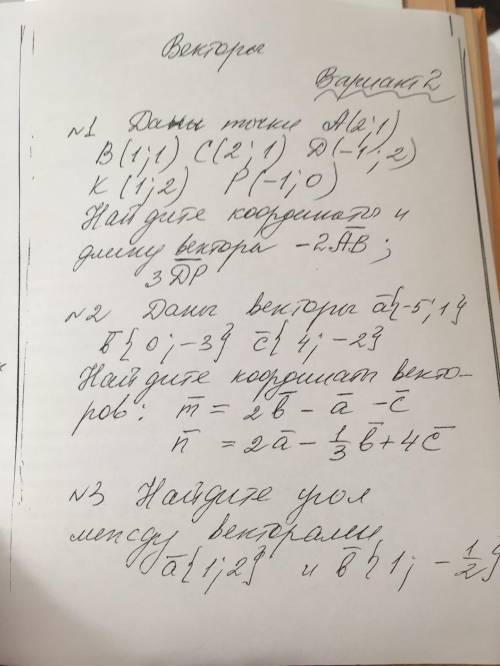 Векторы
Вариант 2
№1 Даны точки A(2;1)
B(1;1) C(2;1) D(-4;2)
K(1;2) P(-1;0)
Найдите координаты и
длину вектора -2A̅B̅;
3D̅P̅
№2 Даны векторы a̅{-5;1}
b̅{0;-3} c̅{4;-2}
Найдите координаты векто-
ров: m̅ = 2b̅ - a̅ - c̅
n̅ = 2a̅ - 1/3 b̅ + 4c̅
№3 Найдите угол
между векторами
a̅{1;2} и b̅{1; -1/2}